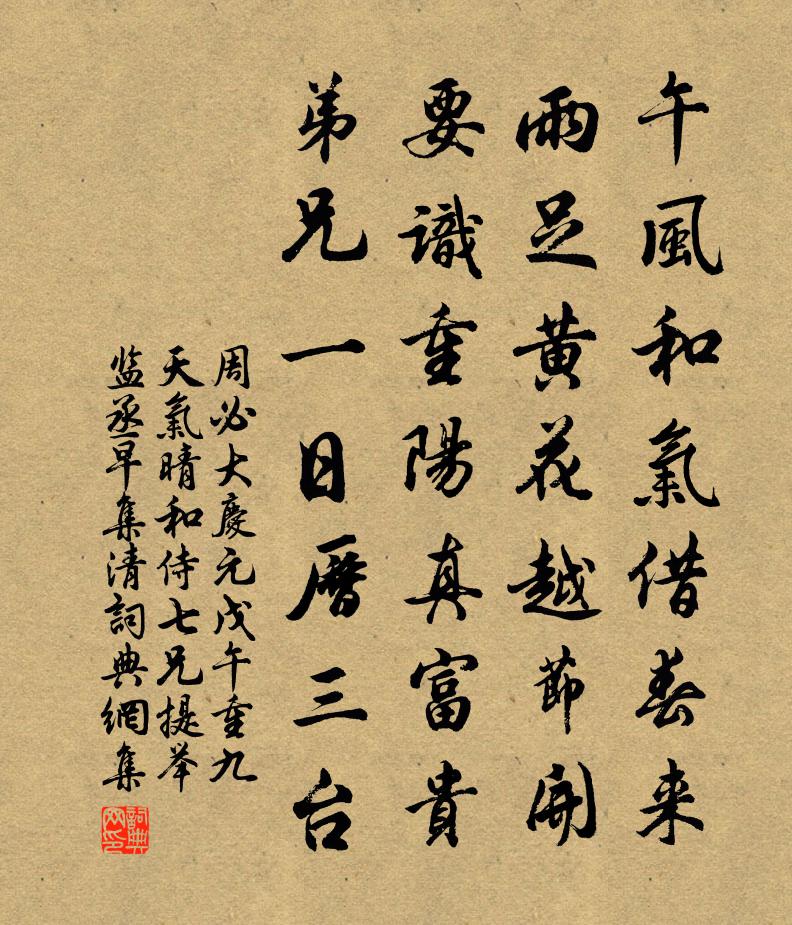 午風和氣借春来
雨足黄花越節開
要識重陽真富貴
弟兄一日曆三台
周必大慶元戊午重九
天氣晴和侍七兄提举
监丞早集清詞典網集
詞典
网印